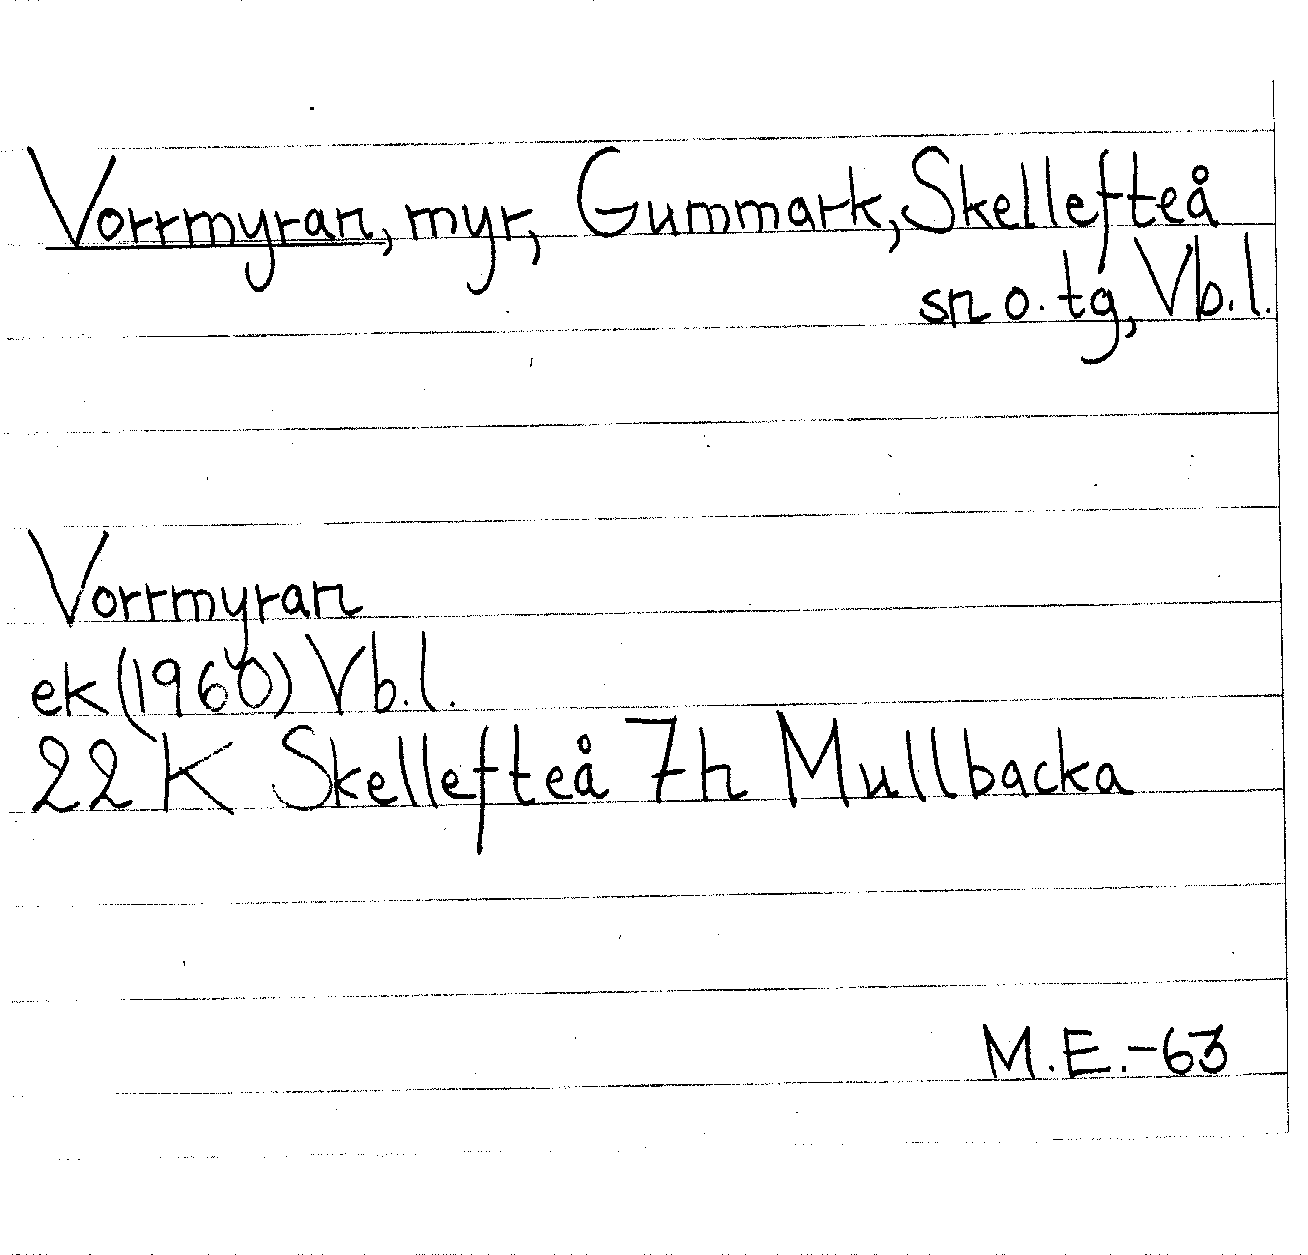 Vorrmyran, myr, Gummark, Skellefteå
sn o. tg, Vb.l.
Vorrmyran
ek (1960) Vb.l.
22 K Skellefteå 7h Mullbacka
M.E.-63